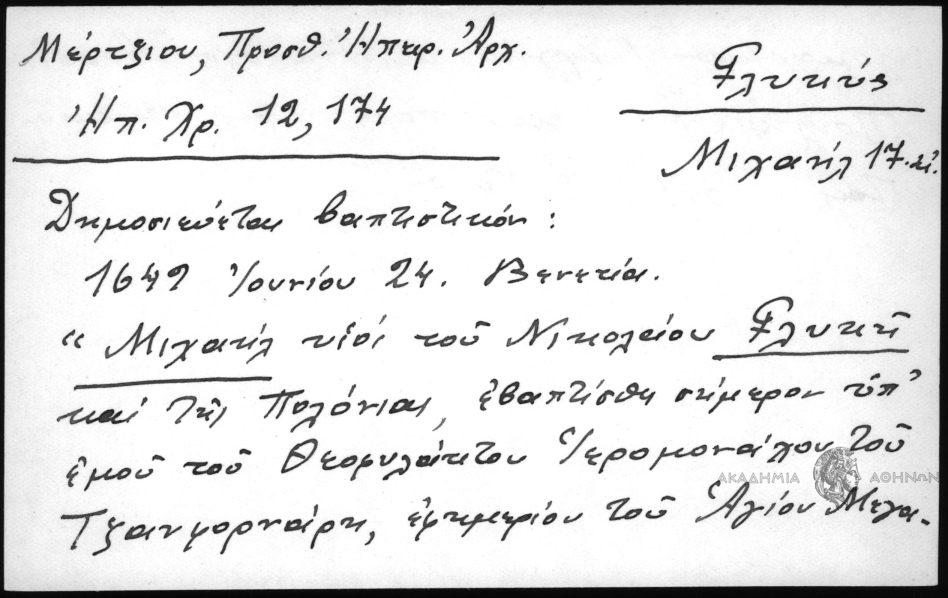 Μέρτζιου, Προσθ. Ἠπειρ. Ἀρχ.
Ἠπ. Χρ. 12, 174
Γλυκύς
Μιχαήλ 17. αἰ.
Δημοσιεύεται βαπτιστικόν :
1642 Ἰουνίου 24. Βενετία.
“ Μιχαήλ υἱός τοῦ Νικολαίου Γλυκῆ
καί τῆς Πολόνιας, ἐβαπτίσθη σήμερον ὑπ'
ἐμοῦ τοῦ Θεοφυλάκτου Ἱερομονάχου τοῦ
Τζανφορνάρη, ἐφημερίου τοῦ Ἁγίου Μεγα-
ΑΚΑΔΗΜΙΑ ΑΘΗΝΩΝ